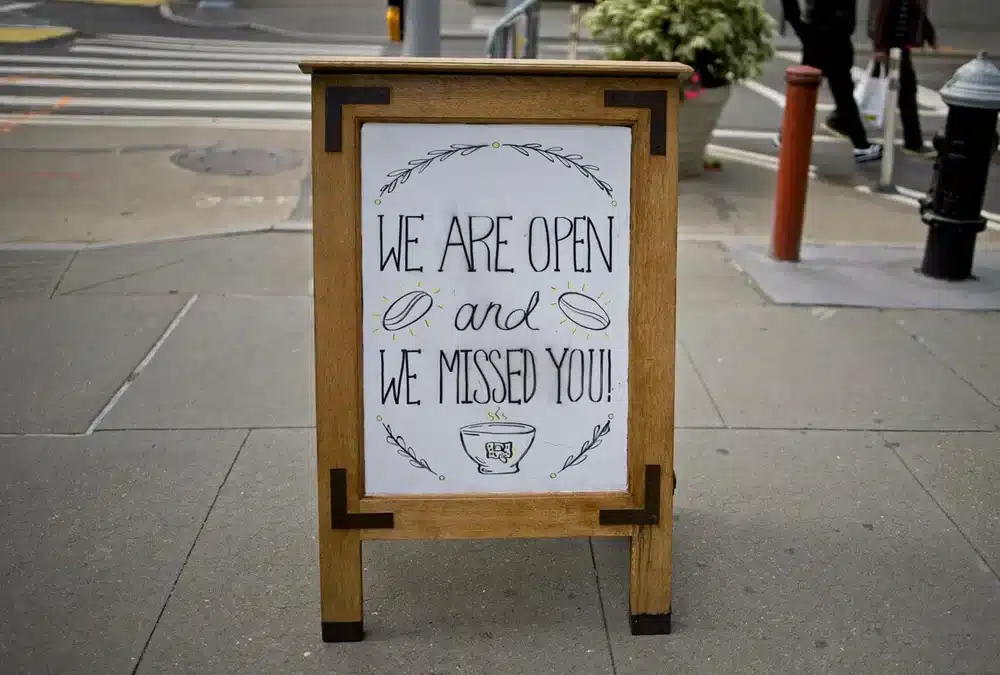 WE ARE OPEN
and
WE MISSED YOU!